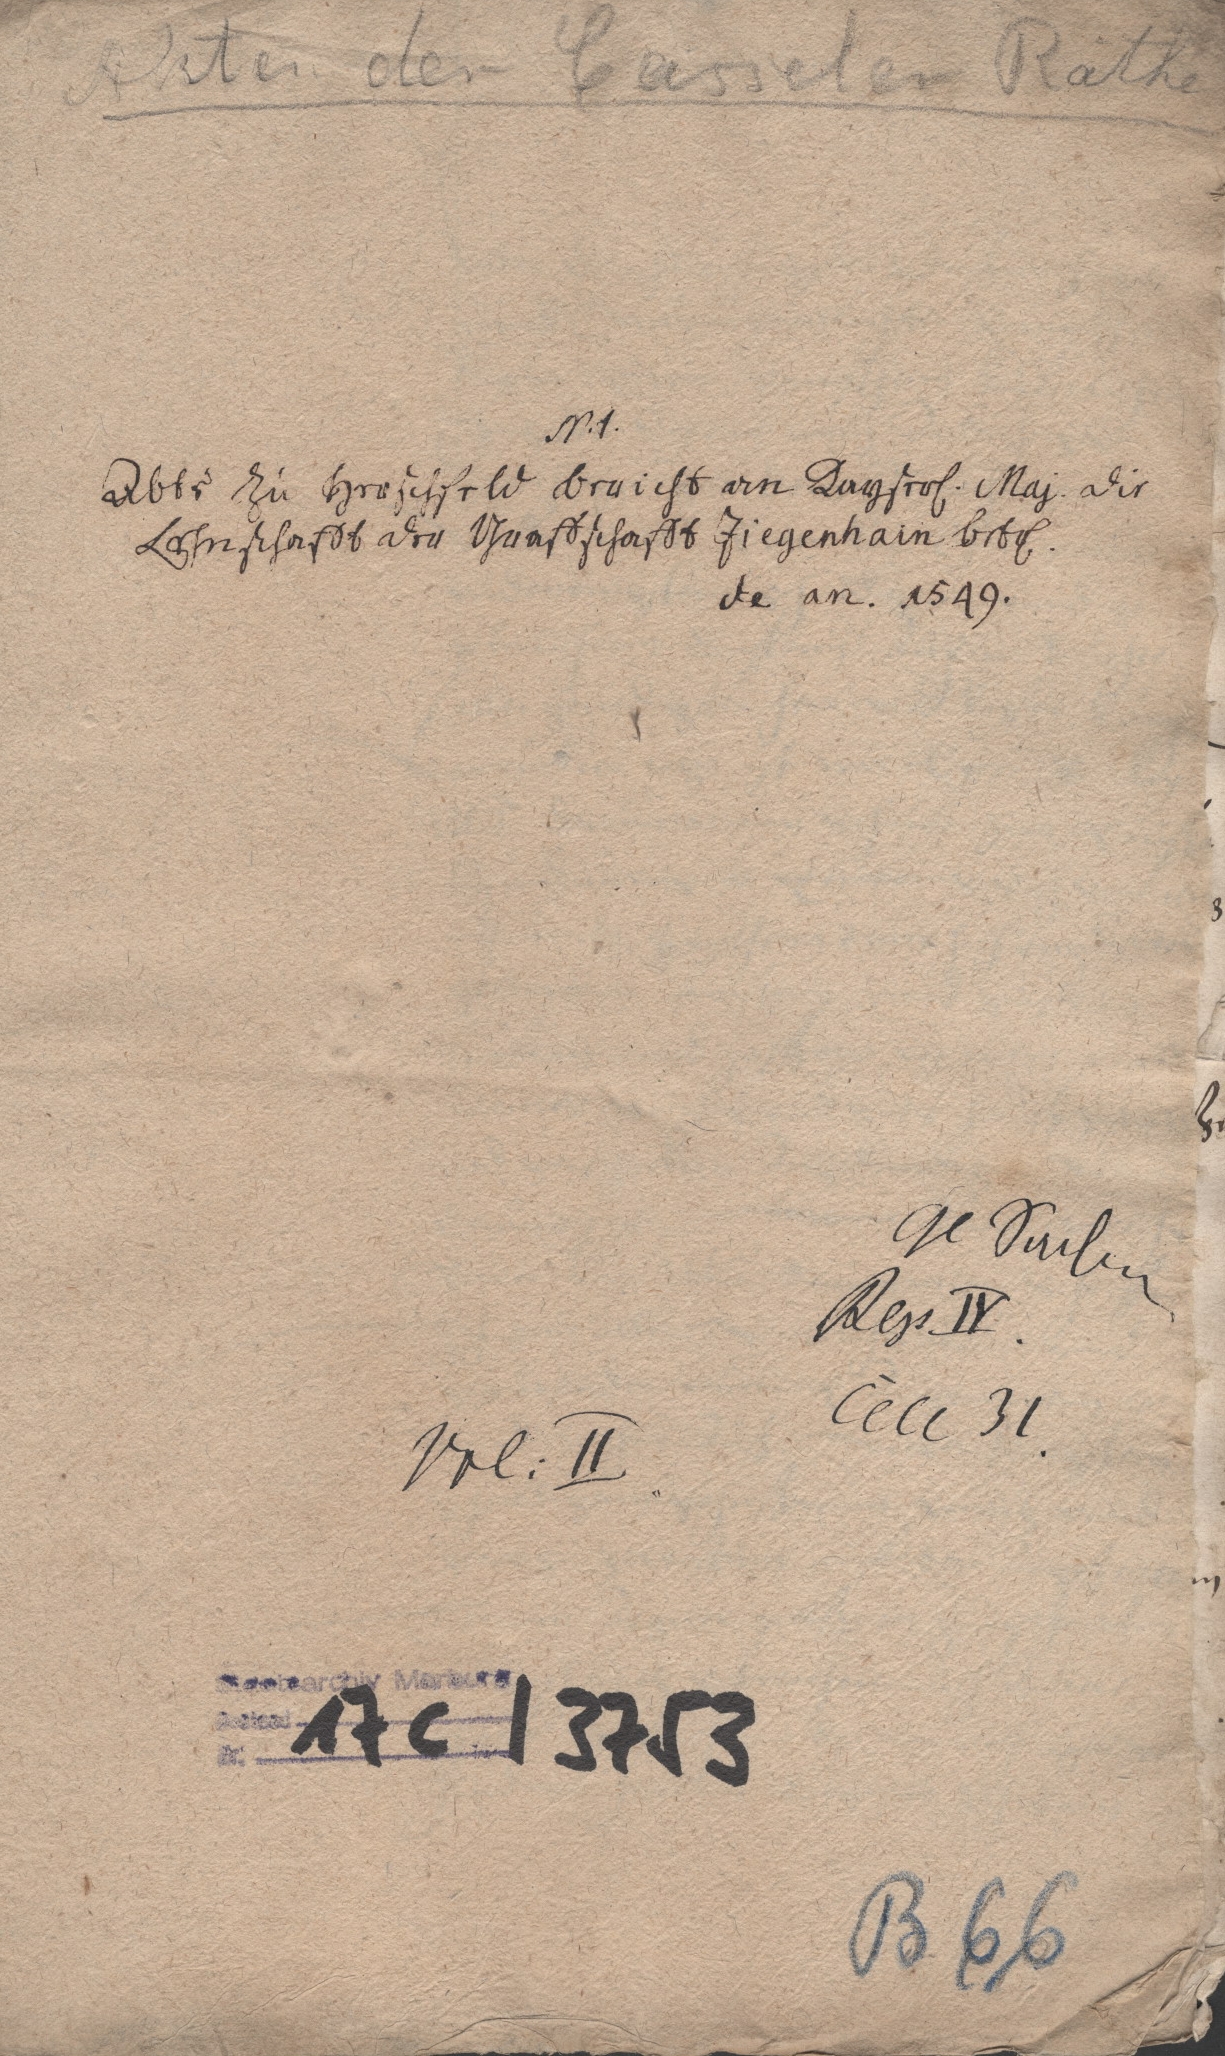 Akten der Casseler Räthe
N. 1.
Abts zu Herschfeld bericht an Kayserl. Maj. die
Lehnschafft der Graffschafft Ziegenhain betr.
de an. 1549.
Rep. IV.
Cell 31.
Vol: II.
Staatsarchiv Marburg
Bestand
Nr.
17 c | 3753
B 66